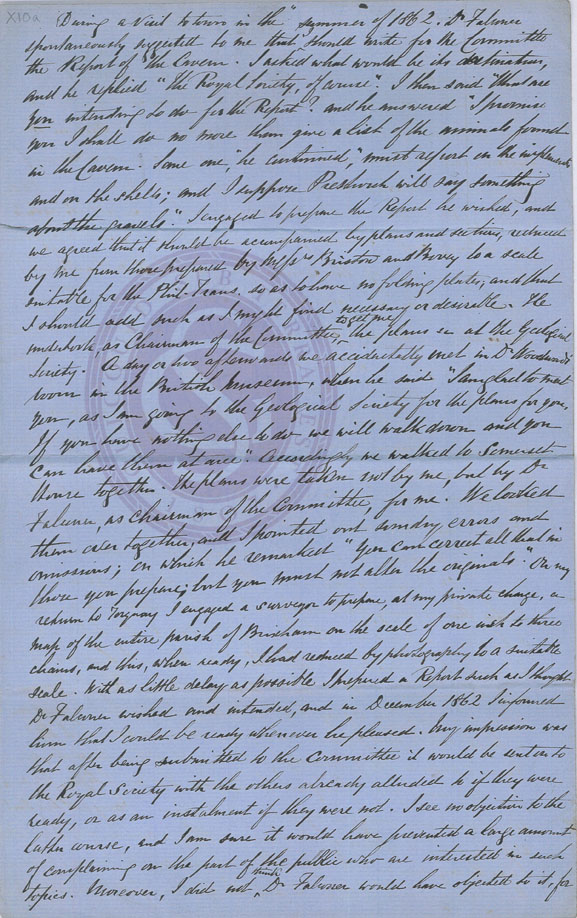 X10a
During a visit to town in the summer of 1862, Dr Falconer
spontaneously suggested to me that I should write for the Committee
the Report of the Cavern. I asked what would be its destination,
and he replied "the Royal Society, of course". I then said "What are
you intending to do for the Report? and he answered "I promise
you I shall do no more than give a list of the animals found
in the Cavern. Some one", he continued, "must report on the implements
and on the shells; and I suppose Prestwich will say something
about the gravels". I engaged to prepare the Report he wished, and
we agreed that it should be accompanied by plans and sections, reduced
by me from those prepared by Messrs Bristow and Bovey to a scale
suitable for the Phil. Trans. so as to have no folding plates, and that
I should add such as I might find necessary or desirable. He
undertook, as Chairman of the Committee, to get me the plans &c at the Geological
Society. A day or two afterwards we accidentally met in Dr Woodward's
room in the British Museum, when he said "I am glad to meet
you, as I am going to the Geological Society for the plans for you,
If you have nothing else to do we will walk down and you
can have them at once". Accordingly we walked to Somerset
House together. The plans were taken not by me, but by Dr
Falconer, as chairman of the Committee, for me. We looked
them over together, and I pointed out sundry errors and
omissions; on which he remarked "You can correct all that in
those you prepare; but you must not alter the originals." On my
return to Torquay I engaged a surveyor to prepare, at my private charge, a
map of the entire parish of Brixham on the scale of one inch to three
chains, and this, when ready, I had reduced by photography to a suitable
scale. With as little delay as possible I prepared a Report such as I thought
Dr Falconer wished and intended, and in December 1862 I informed
him that I could be ready whenever he pleased. My impression was
that after being submitted to the Committee it would be sent on to
the Royal Society with the others already alluded to if they were
ready, or as an instalment if they were not. I see no objection to the
latter course, and I am sure it would have prevented a large amount
of complaining on the part of the public who are interested in such
topics. Moreover, I did not think Dr Falconer would have objected to it, for